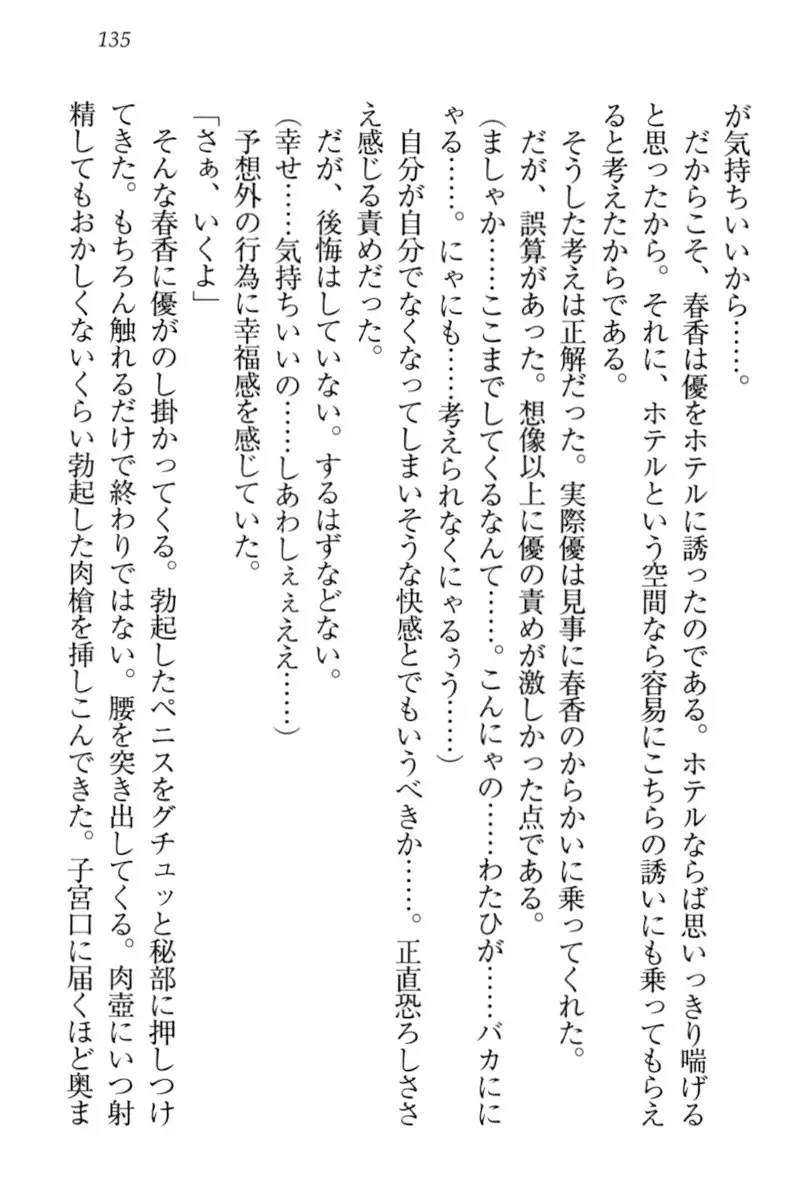 135
が気持ちいいから……。
　だからこそ、春香は優をホテルに誘ったのである。ホテルならば思いっきり喘げる
と思ったから。それに、ホテルという空間なら容易にこちらの誘いにも乗ってもらえ
ると考えたからである。
　そうした考えは正解だった。実際優は見事に春香のからかいに乗ってくれた。
　だが、誤算があった。想像以上に優の責めが激しかった点である。
（ましゃか……ここまでしてくるなんて……。こんにゃの……わたひが……バカにに
ゃる……。にゃにも……考えられなくにゃるぅう……）
　自分が自分でなくなってしまいそうな快感とでもいうべきか……。正直恐ろしささ
え感じる責めだった。
　だが、後悔はしていない。するはずなどない。
（幸せ……気持ちいいの……しあわしぇぇええ……）
　予想外の行為に幸福感を感じていた。
「さぁ、いくよ」
　そんな春香に優がのし掛かってくる。勃起したペニスをグチュッと秘部に押しつけ
てきた。もちろん触れるだけで終わりではない。腰を突き出してくる。肉壺にいつ射
精してもおかしくないくらい勃起した肉槍を挿しこんできた。子宮口に届くほど奥ま